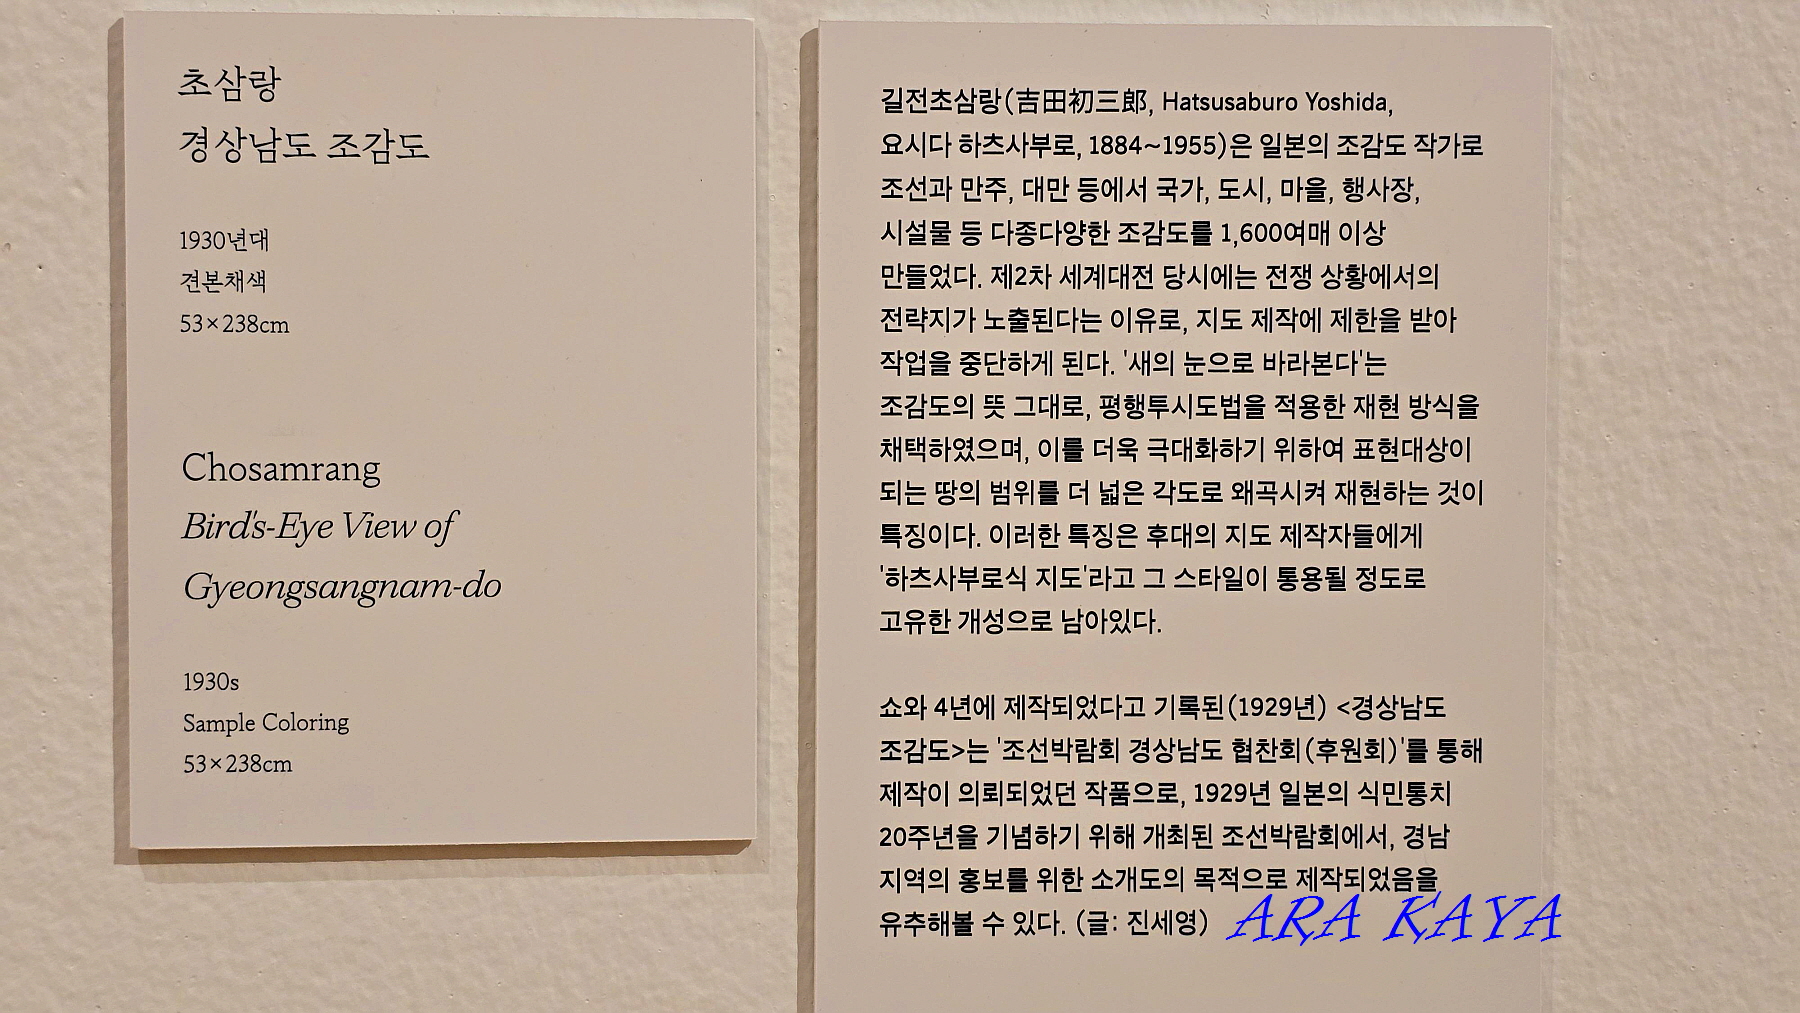 초삼랑
경상남도 조감도
1930년대
견본채색
53×238cm
Chosamrang
Bird's-Eye View of
Gyeongsangnam-do
1930s
Sample Coloring
53×238cm
길전초삼랑(吉田初三郎, Hatsusaburo Yoshida,
요시다 하츠사부로, 1884~1955)은 일본의 조감도 작가로
조선과 만주, 대만 등에서 국가, 도시, 마을, 행사장,
시설물 등 다종다양한 조감도를 1,600여매 이상
만들었다. 제2차 세계대전 당시에는 전쟁 상황에서의
전략지가 노출된다는 이유로, 지도 제작에 제한을 받아
작업을 중단하게 된다. '새의 눈으로 바라본다'는
조감도의 뜻 그대로, 평행투시도법을 적용한 재현 방식을
채택하였으며, 이를 더욱 극대화하기 위하여 표현대상이
되는 땅의 범위를 더 넓은 각도로 왜곡시켜 재현하는 것이
특징이다. 이러한 특징은 후대의 지도 제작자들에게
'하츠사부로식 지도'라고 그 스타일이 통용될 정도로
고유한 개성으로 남아있다.
쇼와 4년에 제작되었다고 기록된(1929년) <경상남도
조감도>는 '조선박람회 경상남도 협찬회(후원회)'를 통해
제작이 의뢰되었던 작품으로, 1929년 일본의 식민통치
20주년을 기념하기 위해 개최된 조선박람회에서, 경남
지역의 홍보를 위한 소개도의 목적으로 제작되었음을
유추해볼 수 있다. (글: 진세영)
ARA KAYA